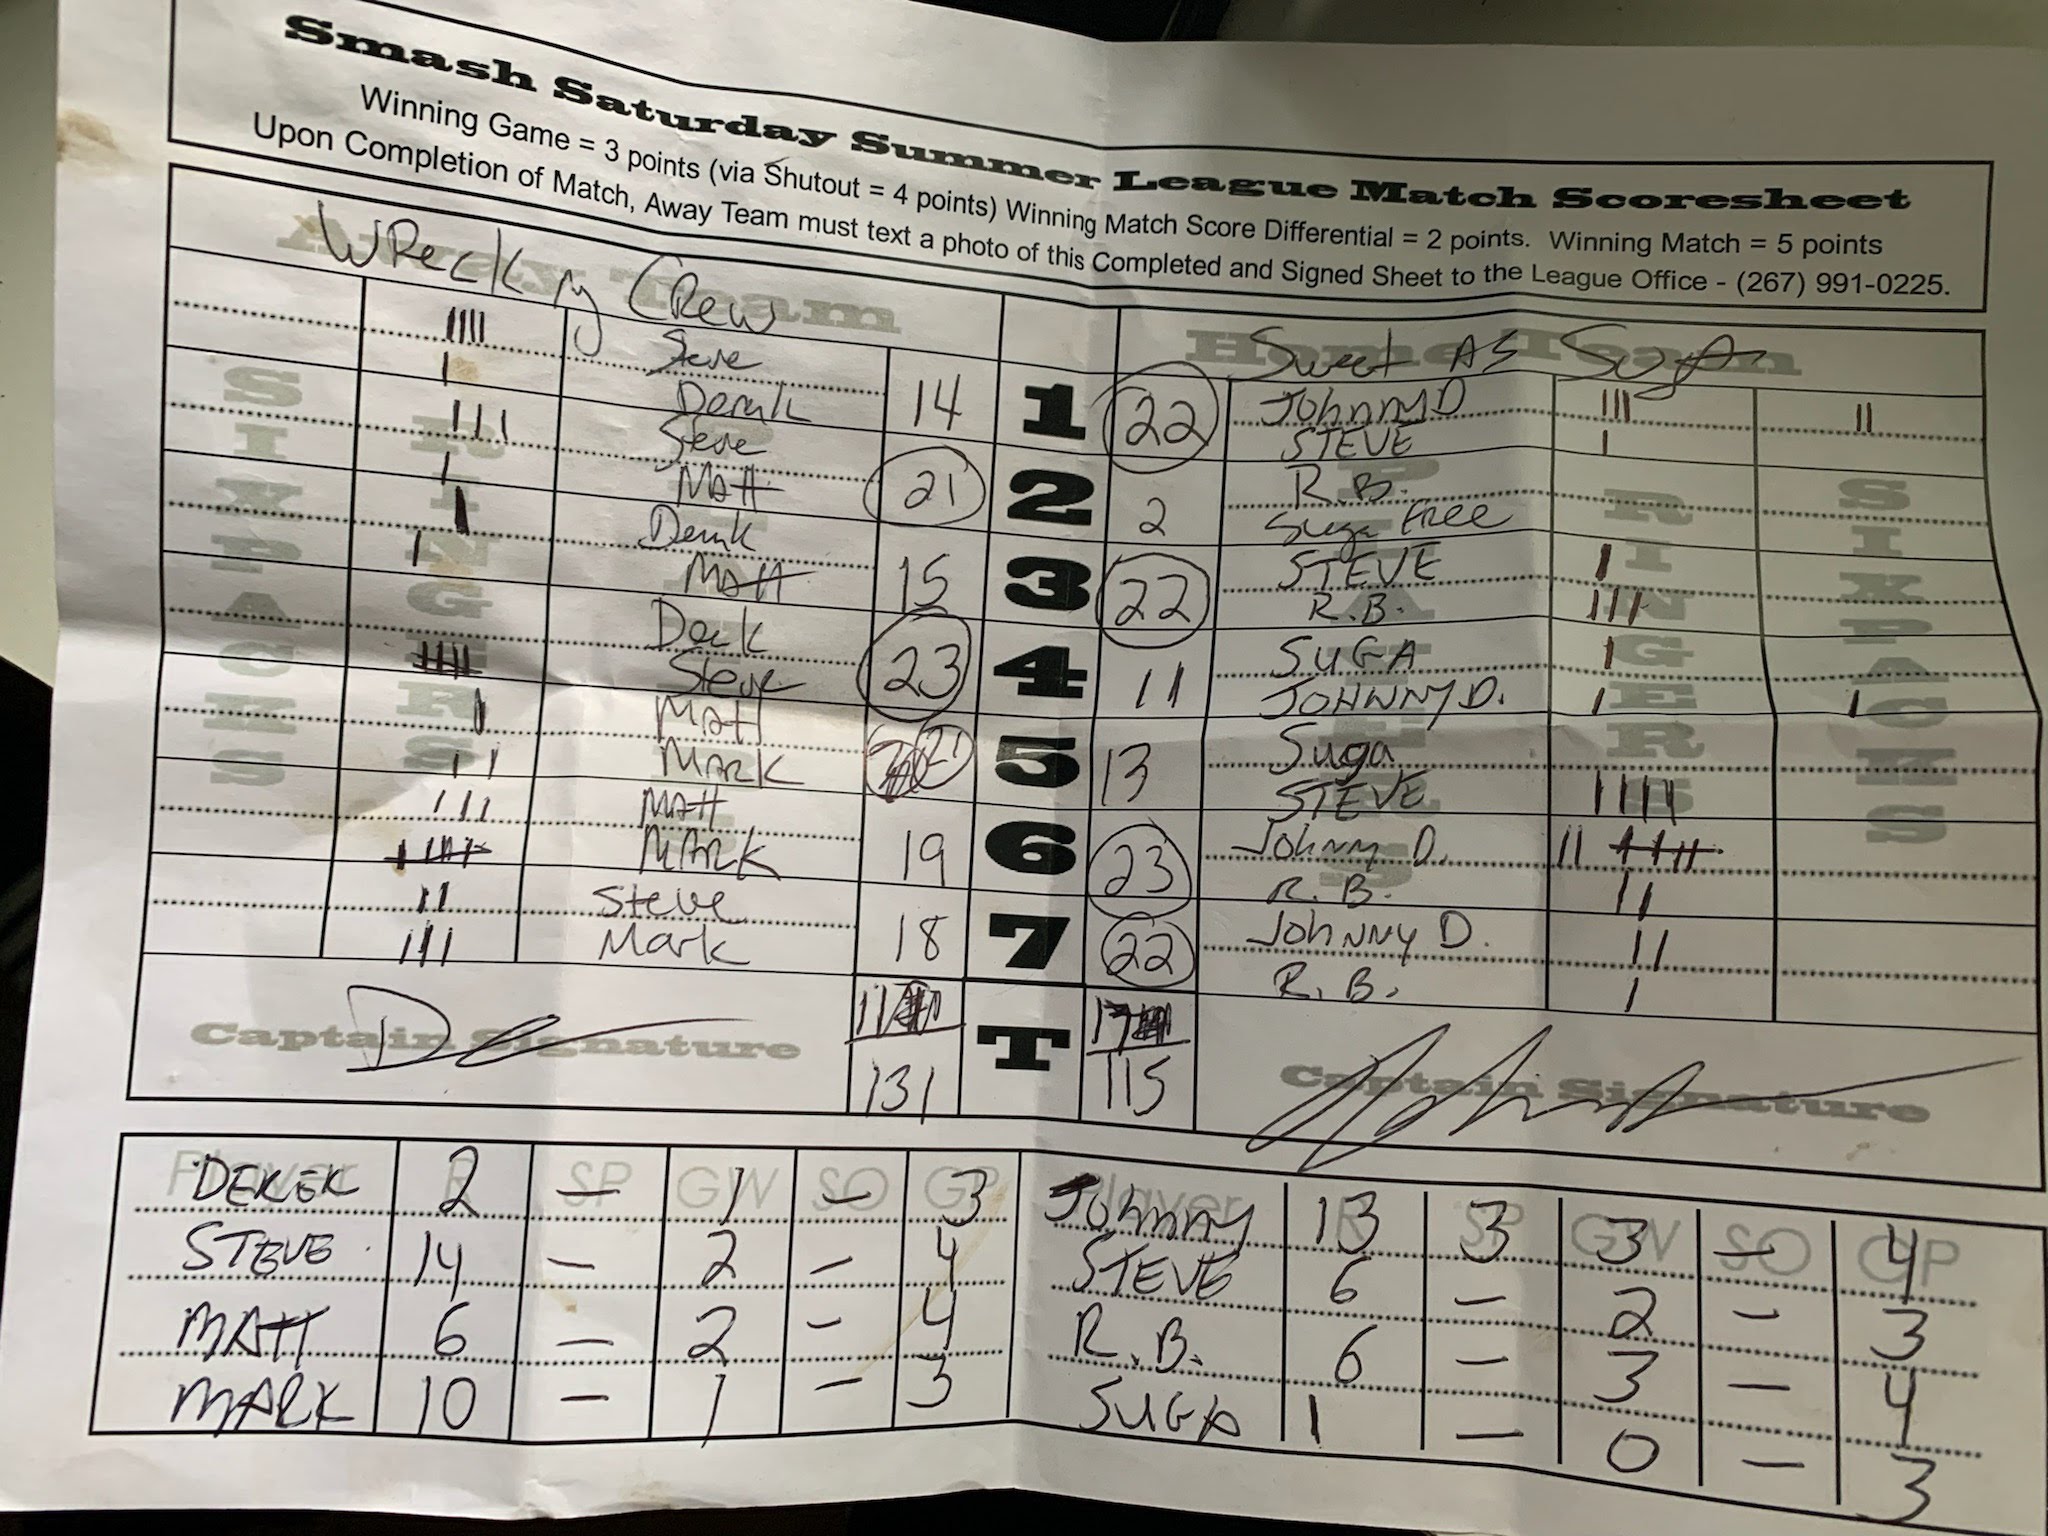 Smash Saturday Summer League Match Scoresheet
Winning Game = 3 points (via Shutout = 4 points) Winning Match Score Differential = 2 points. Winning Match = 5 points
Upon Completion of Match, Away Team must text a photo of this Completed and Signed Sheet to the League Office - (267) 991-0225.
Away Team
WReckin Crew
Home Team
Sweet AS
SIX PACKS RINGERS
RINGERS SIX PACKS
Steve 14 1 22 Johnny D
Derek STEVE
Steve 21 2 2 R.B.
Matt Suga Free
Derek 15 3 22 STEVE
Matt R.B.
Derek 23 4 11 SUGA
Steve JOHNNY D.
Matt 21 5 13 Suga
Mark STEVE
Matt 19 6 23 Johnny D.
MARK R.B.
Steve 18 7 22 Johnny D.
Mark R.B.
Captain Signature T Captain Signature
131 115
Player R SP GW SO GP Player R SP GW SO GP
DEREK 2 — 1 — 3 Johnny 13 3 3 — 4
STEVE 14 — 2 — 4 STEVE 6 — 2 — 3
MATT 6 — 2 — 4 R.B. 6 — 3 — 4
MARK 10 — 1 — 3 SUGA 1 — 0 — 3